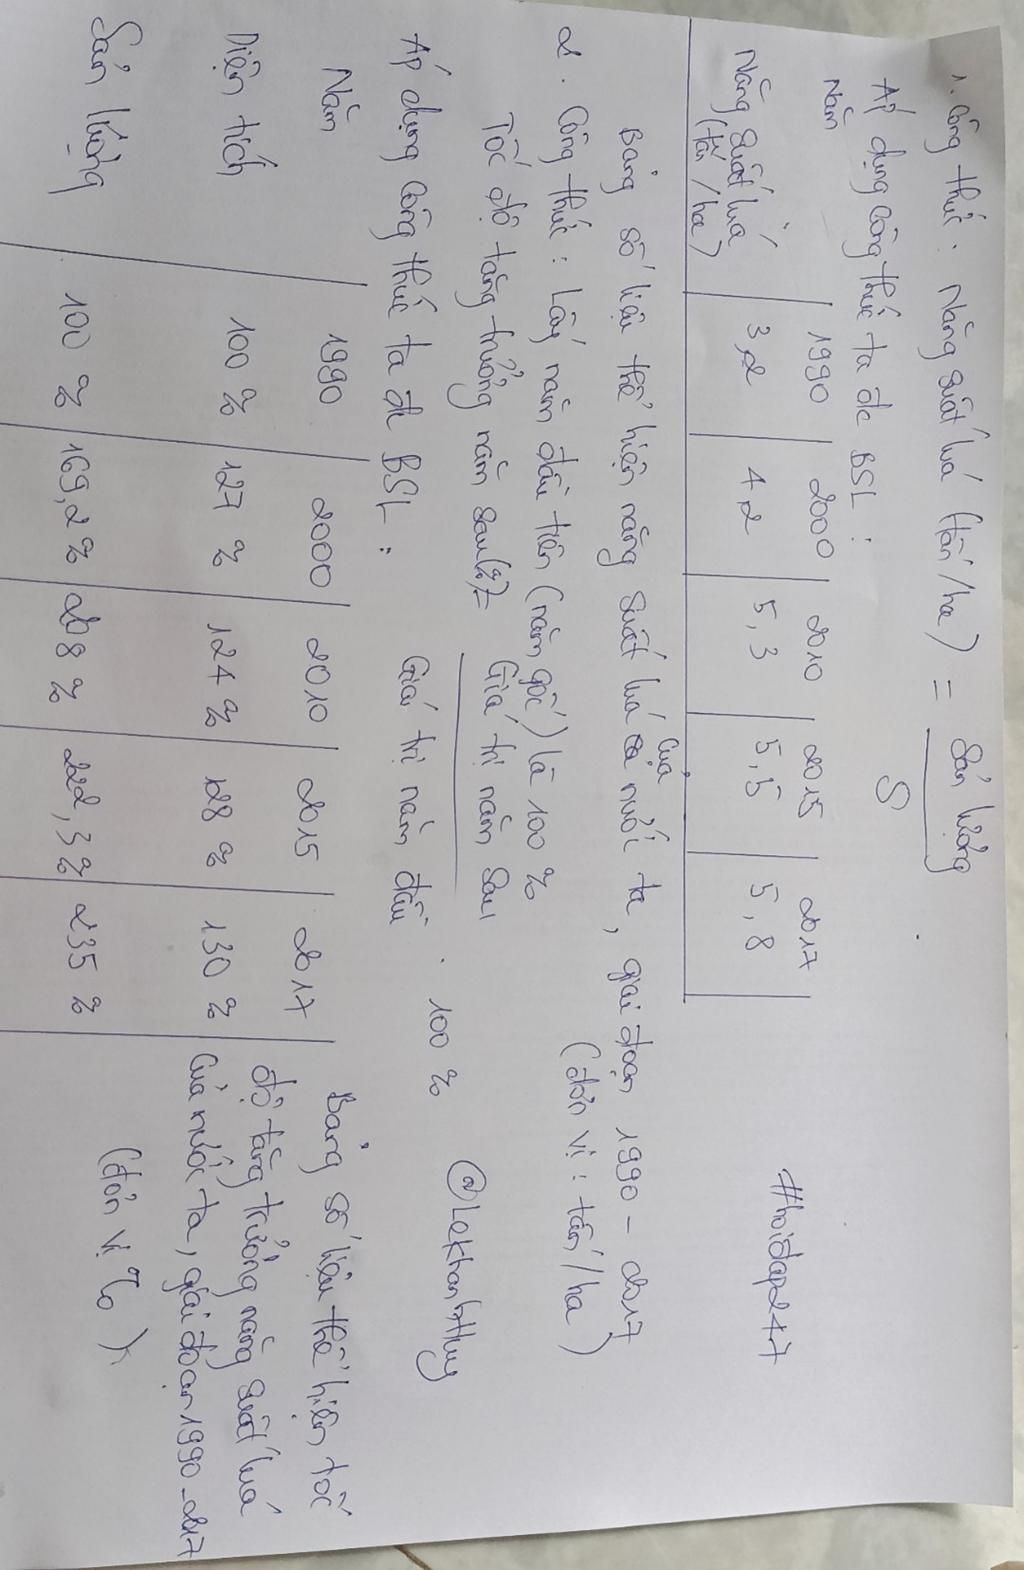 1. Công thức: Năng suất lúa (tấn/ha) = Sản lượng / S
Áp dụng công thức ta đc BSL:
Năm 1990 2000 2010 2015 2017
Năng suất lúa (tấn/ha) 3,2 4,2 5,3 5,5 5,8
#hoidap247
Bảng số liệu thể hiện năng suất lúa của nước ta, giai đoạn 1990 - 2017
(đơn vị: tấn/ha)
2. Công thức: Lấy năm đầu tiên (năm gốc) là 100 %
Tốc độ tăng trưởng năm sau(%)= Giá trị năm sau / Giá trị năm đầu . 100 %
@LeKhanhHuy
Áp dụng công thức ta đc BSL:
Năm 1990 2000 2010 2015 2017
Diện tích 100 % 127 % 124 % 128 % 130 %
Sản lượng 100 % 169,2 % 208 % 222,3 % 235 %
Bảng số liệu thể hiện tốc
độ tăng trưởng năng suất lúa
của nước ta, giai đoạn 1990-2017
(đơn vị %)